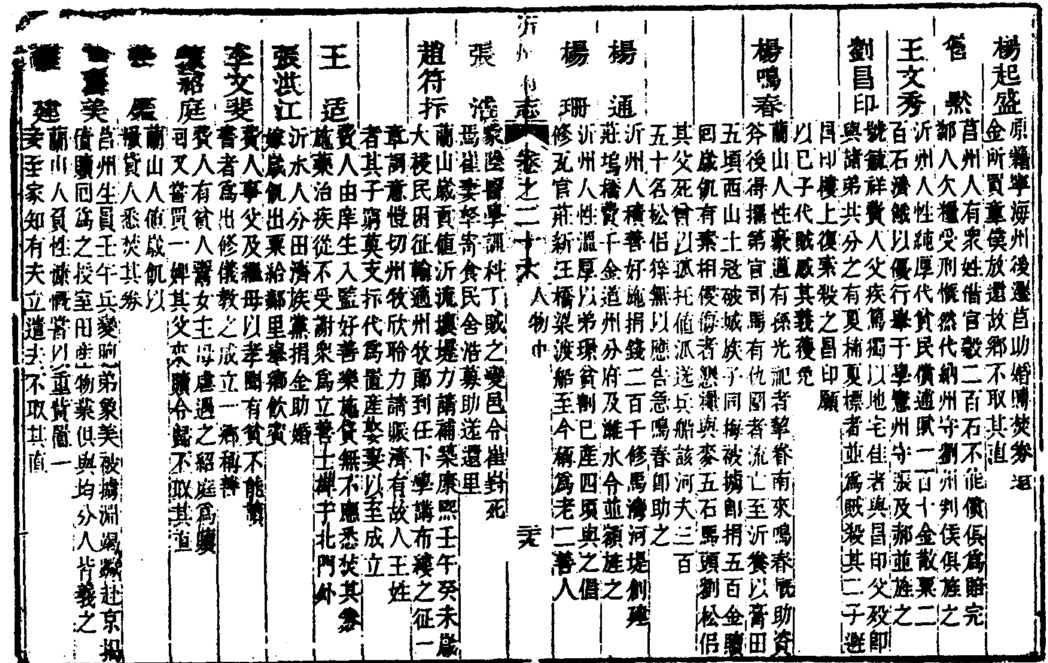 楊起盛 原籍寧海州後遷莒助婚賻焚券還
金所買童僕放還故鄉不取其直
昝 黙 莒州人有衆姓借官穀二百石不能償俱爲賠完
鄰人欠糧受刑慨然代納州守劉州判侯俱旌之
王文秀 沂州人性純厚代貧民償逋賦一百十金散粟二
百石濟饑以優行舉于學憲州守張及郝並旌之
劉昌印 號鍾祥費人父疾篤獨以地宅佳者與昌印父殁即
與諸弟共分之有夏楠夏標者並爲賊殺其二子避
昌印樓上復索殺之昌印願
以已子代賊感其義獲免
楊鳴春 蘭山人性豪邁有孫光記者挈眷南來鳴春慨助資
斧後得攉第官司馬有仇國者流亡至沂養以膏田
五頃西山土冦破城族子同梅被擄即捐五百金贖
囘歲飢有素相侵侮者悲糶與麥五石馬頭劉松侣
其父死曾以派托値派送兵船該河夫三百
五十名松侣猝無以應告急鳴春即助之
楊 通 沂州人積善好施捐錢二百千修馬濟河堤創建
莊塢橋費千金道州分府及濰水令並額旌之
楊 珊 沂州人性溫厚以弟環貧割已產四頃與之倡
修瓦官莊新汪橋梁渡船至今稱爲老二善人
沂州府志 卷之二十六 人物中 三六
張 浩 蒙陰醫學訓科丁賊之變邑令崔對死
焉崔妻孥寄食民舍浩募助送還里
趙符抍 蘭山歲貢値沂流壊堤力請補築康熙壬午癸未歲
大祲民困征輸適州牧鄭到任下學講布縷之征一
章詞意愷切州牧欣聆力請賑濟有故人王姓
者其子窮奠支抍代爲置產娶妻以至成立
王 适 費人由庠生入監好善樂施貸無不應悉焚其券
施藥治疾從不受謝衆爲立善士碑于北門外
張洪江 沂水人分田濟族黨捐金助婚
嫁歲飢出粟給鄰里舉鄉飲賓
李文斐 費人事父及繼母以孝聞有貧不能讀
書者爲出修儀教之成立一鄉稱善
紹庭 費人有貧人鬻女主母虐遇之紹庭爲贖
司又嘗買一婢其父來贖令歸不取其直
蘭山人値歲飢以
糧貸人悉焚其券
美 莒州生員壬午兵變昫弟象美被擄淵竭蹶赴京揭
債贖囘爲之授室田產生物業俱與均分人皆義之
建 蘭山人負性慷慨嘗以重貲置一
妾至家知有夫立遣去不取其直